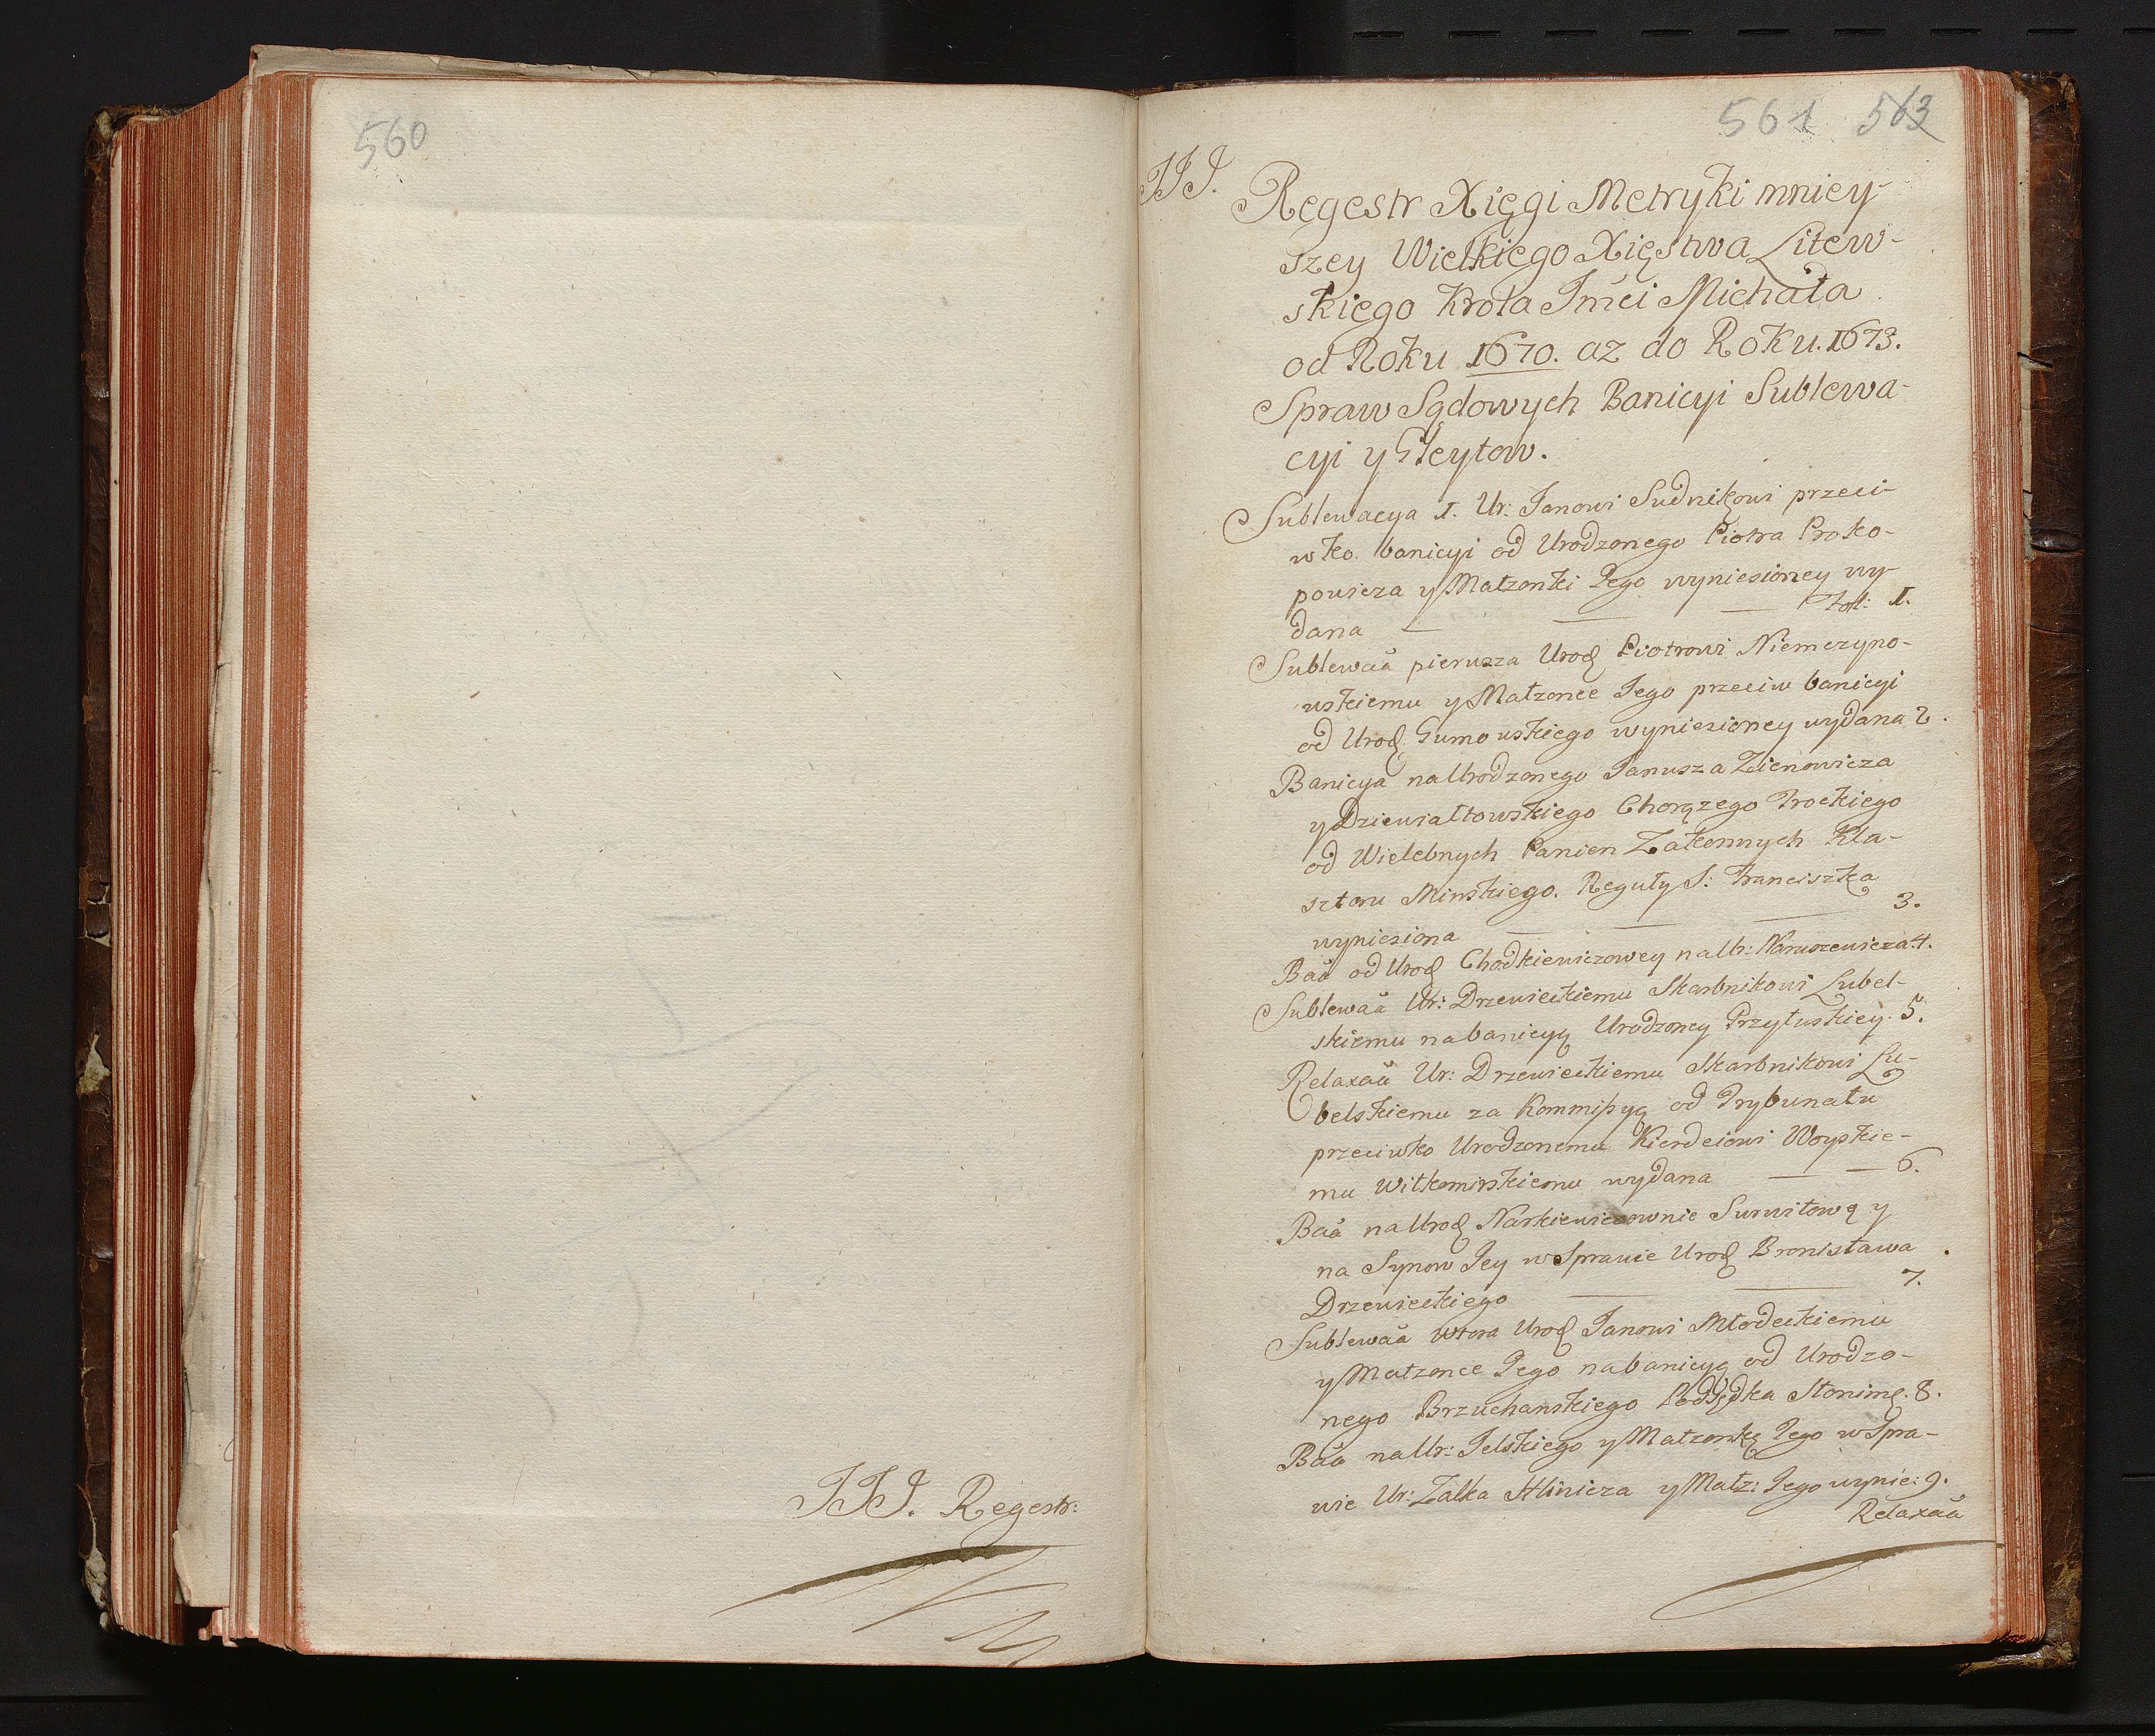 560
III. Regestr:
561 563
III.
Regestr Xięgi Metryki mniey-
szey Wielkiego Xięstwa Litew-
skiego Krola Jmći Michała
od Roku 1670. az do Roku. 1673.
Spraw Sądowych Banicyi Sublewa-
cyi y Gleytow.
Sublewacya 1. Ur: Janowi Sudnikowi przeci-
wko banicyi od Urodzonego Piotra Proko-
powicza y Małzonki Jego wyniesioney wy-
dana — — — Fol: 1.
Sublewaã pierwsza Urod Piotrowi Niemczyno-
wskiemu y Małzonce Jego przeciw banicyi
od Urod Gumowskiego wyniesioney wydana 2.
Banicya na Urodzonego Janusza Zienowicza
y Dziewiałtowskiego Chorązego Trockiego
od Wielebnych Panien Zakonnych Kla-
sztoru Minskiego. Reguły S: Franciszka
wyniesiona — — — 3.
Baã od Urod Chodkiewiczowey na Ur: Naruszewicza 4.
Sublewaã Ur: Drzewieckiemu Skarbnikowi Lubel-
skiemu na banicyą Urodzoney Przyłuskiey. 5.
Relaxaã Ur: Drzewieckiemu Skarbnikowi Lu-
belskiemu za Kommißyą od Trybunału
przeciwko Urodzonemu Kierdeiowi Woyskie-
mu Wiłkomirskiemu wydana — — 6.
Baã na Urod Narkiewiczownie Surwiłową y
na Synow Jey w Sprawie Urod Bronisława
Drzewieckiego — — 7.
Sublewaã wtora Urod Janowi Młodeckiemu
y Małzonce Jego na banicyą od Urodzo-
nego Brzuchanskiego Podsędka Słonims. 8.
Baã na Ur: Jelskiego y Małzonkę Jego w Spra-
wie Ur: Zalka Hlinicza y Małz: Jego wynie: 9.
Relaxaã